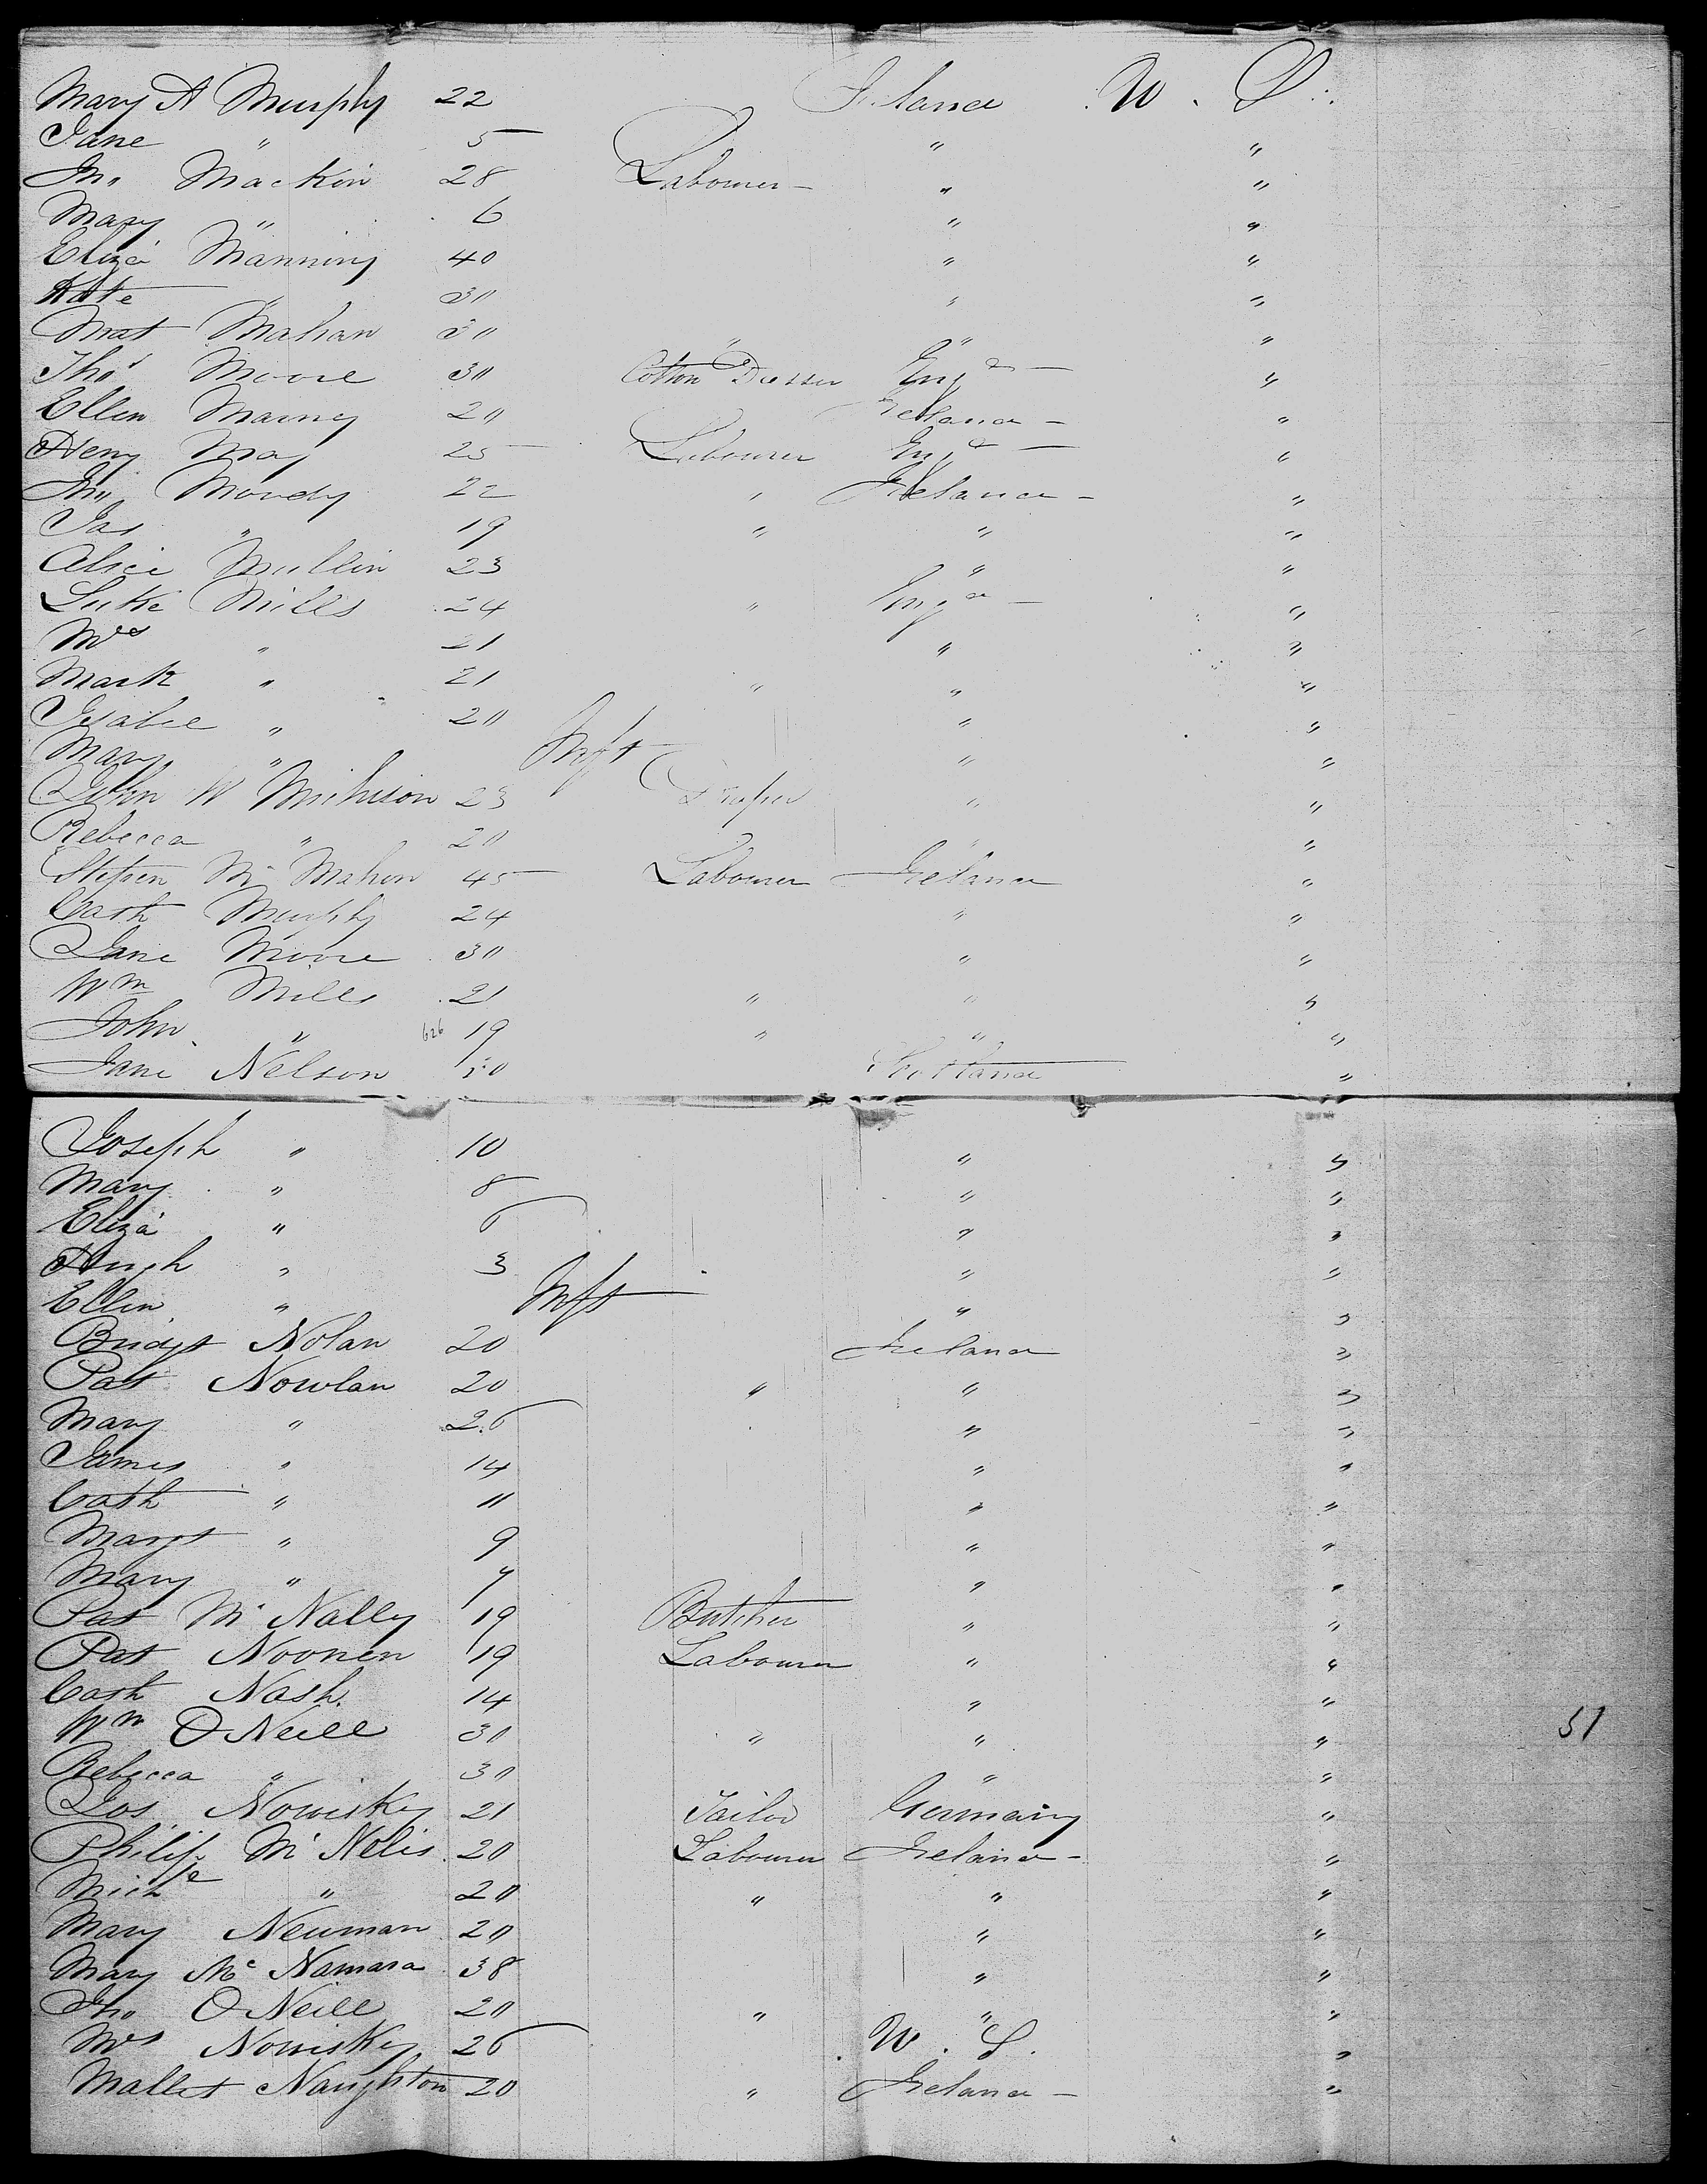 Mary A Murphy 22 Ireland W. S.
Jane " 5 " "
Jno Mackin 28 Labourer " "
Mary " 6 " "
Eliza Manning 40 " "
Kate " 30 " "
Mat Mahan 30 " " "
Thos Moore 30 Cotton Dresser Engd "
Ellen Marney 20 Ireland "
Henry May 25 Labourer Engd "
Jno Moody 22 " Ireland "
Jas " 19 " " "
Alice Mullin 23 " "
Luke Mills 24 " Engd "
Mrs " 21 " "
Mark " 21 " " "
Isabel " 20 " "
Mary " Inft " "
John W 23 Draper " "
Rebecca " 20 " "
Stephen Mc Mahon 45 Labourer Ireland "
Cath Murphy 24 " "
Jane Moore 30 " "
Wm Mills 21 " " "
John " 626 19 " " "
Jane Nelson 30 Scotland "
Joseph " 10 " "
Mary " 8 " "
Eliza " 6 " "
Hugh " 3 " "
Ellen " Inft " "
Bridgt Nolan 20 Ireland "
Pat Nowlan 20 " " "
Mary " 26 " "
James " 14 " "
Cath " 11 " "
Margt " 9 " "
Mary " 7 " "
Pat Mc Nally 19 Butcher " "
Pat Noonen 19 Labourer " "
Cath Nash 14 " "
Wm O Neill 30 " " " 51
Rebecca " 30 " "
Jos Nowisky 21 Tailor Germany "
Philip Mc Nelis 20 Labourer Ireland "
Michl " 20 " " "
Mary Newman 20 " "
Mary Mc Namara 38 " "
Jno O Neill 20 " " "
Mrs Nowisky 26 W. S. "
Mallet Naughton 20 " Ireland "